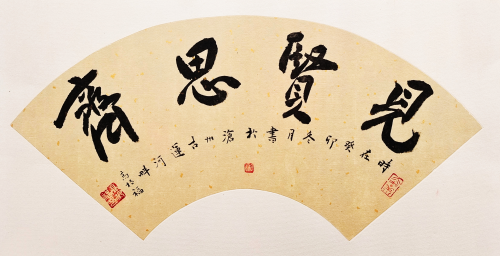 見賢思齊
時在癸卯冬月書於滄州古運河畔